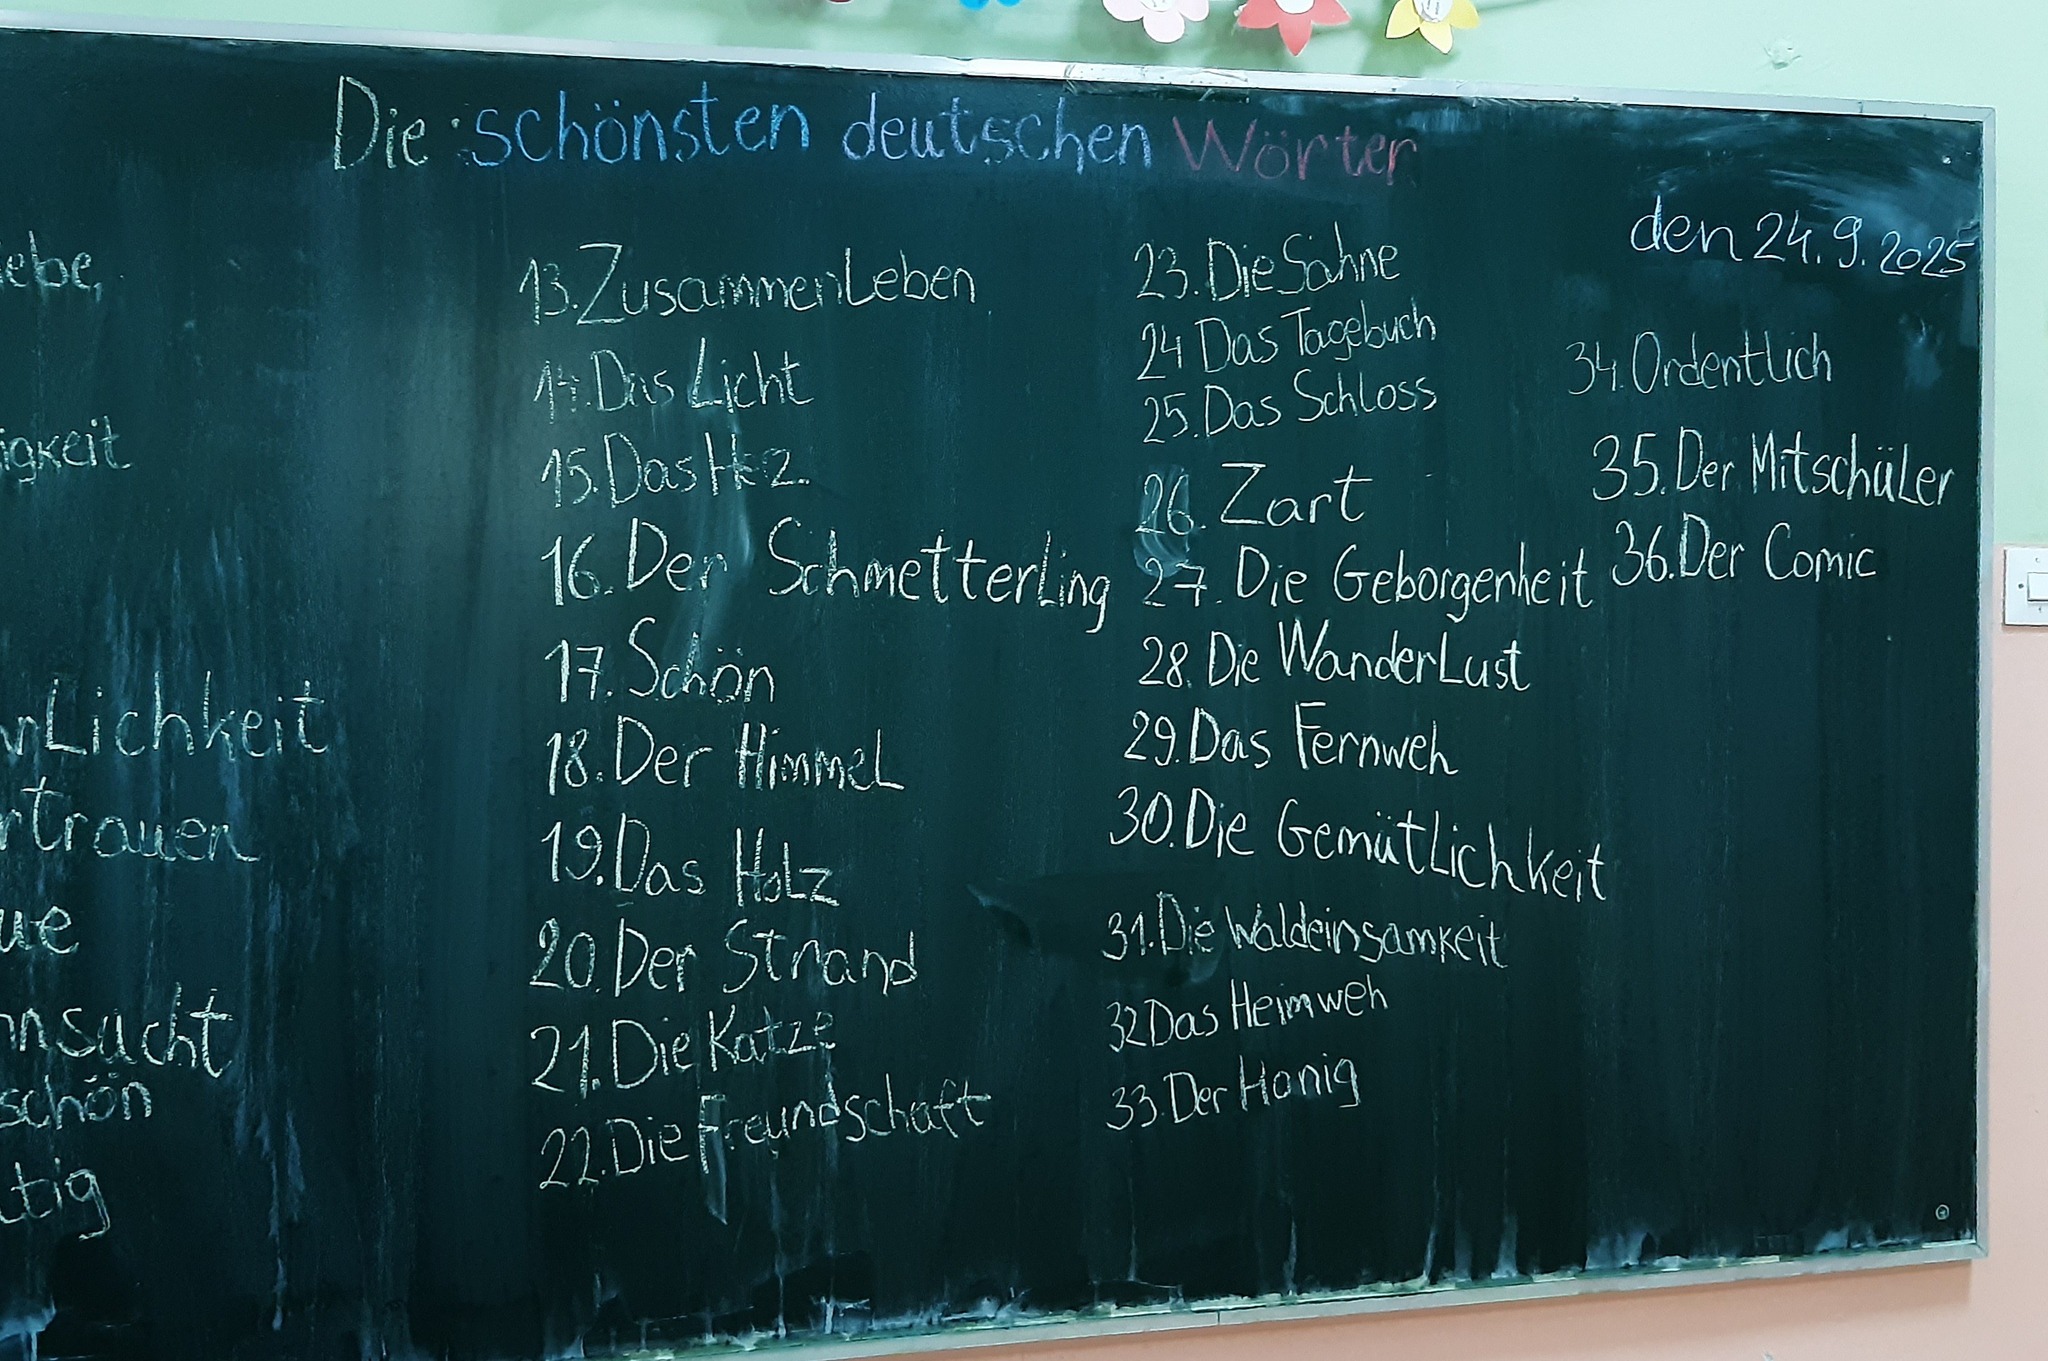 Die schönsten deutschen Wörter
den 24.9.2025
igkeit
schön
13. Zusammenleben
14. Das Licht
15. Das
16. Der Schmetterling
17. Schön
18. Der Himmel
19. Das Holz
20. Der Strand
21. Die Katze
22. Die Freundschaft
23. Die Sahne
24 Das Tagebuch
25. Das Schloss
26. Zart
27. Die Geborgenheit
28. Die Wanderlust
29. Das Fernweh
30. Die Gemütlichkeit
31. Die Waldeinsamkeit
32 Das Heimweh
33. Der Honig
34. Ordentlich
35. Der Mitschüler
36. Der Comic